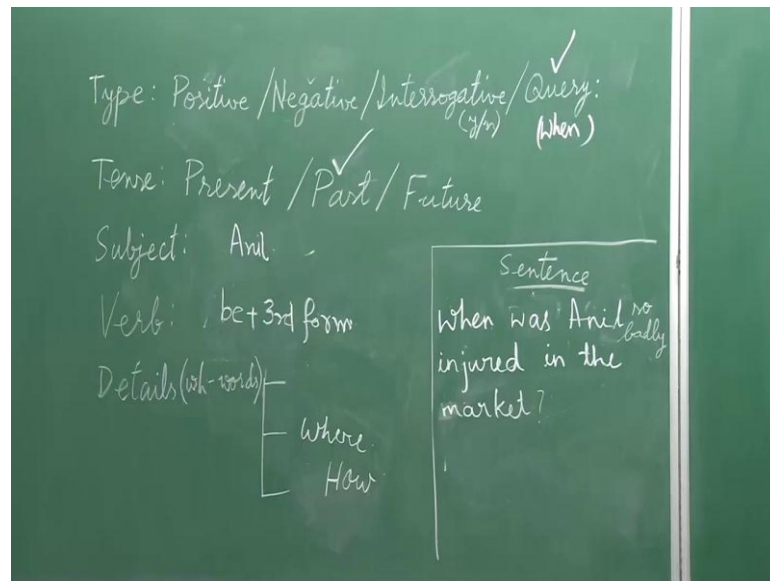 Type: Positive /Negative/Interrogative/Query:
(y/n) (When)
Tense: Present /Past / Future
Subject: Anil
Verb: be+3rd form
Details (wh-words)
Where
How
Sentence
When was Anil so badly
injured in the
market?